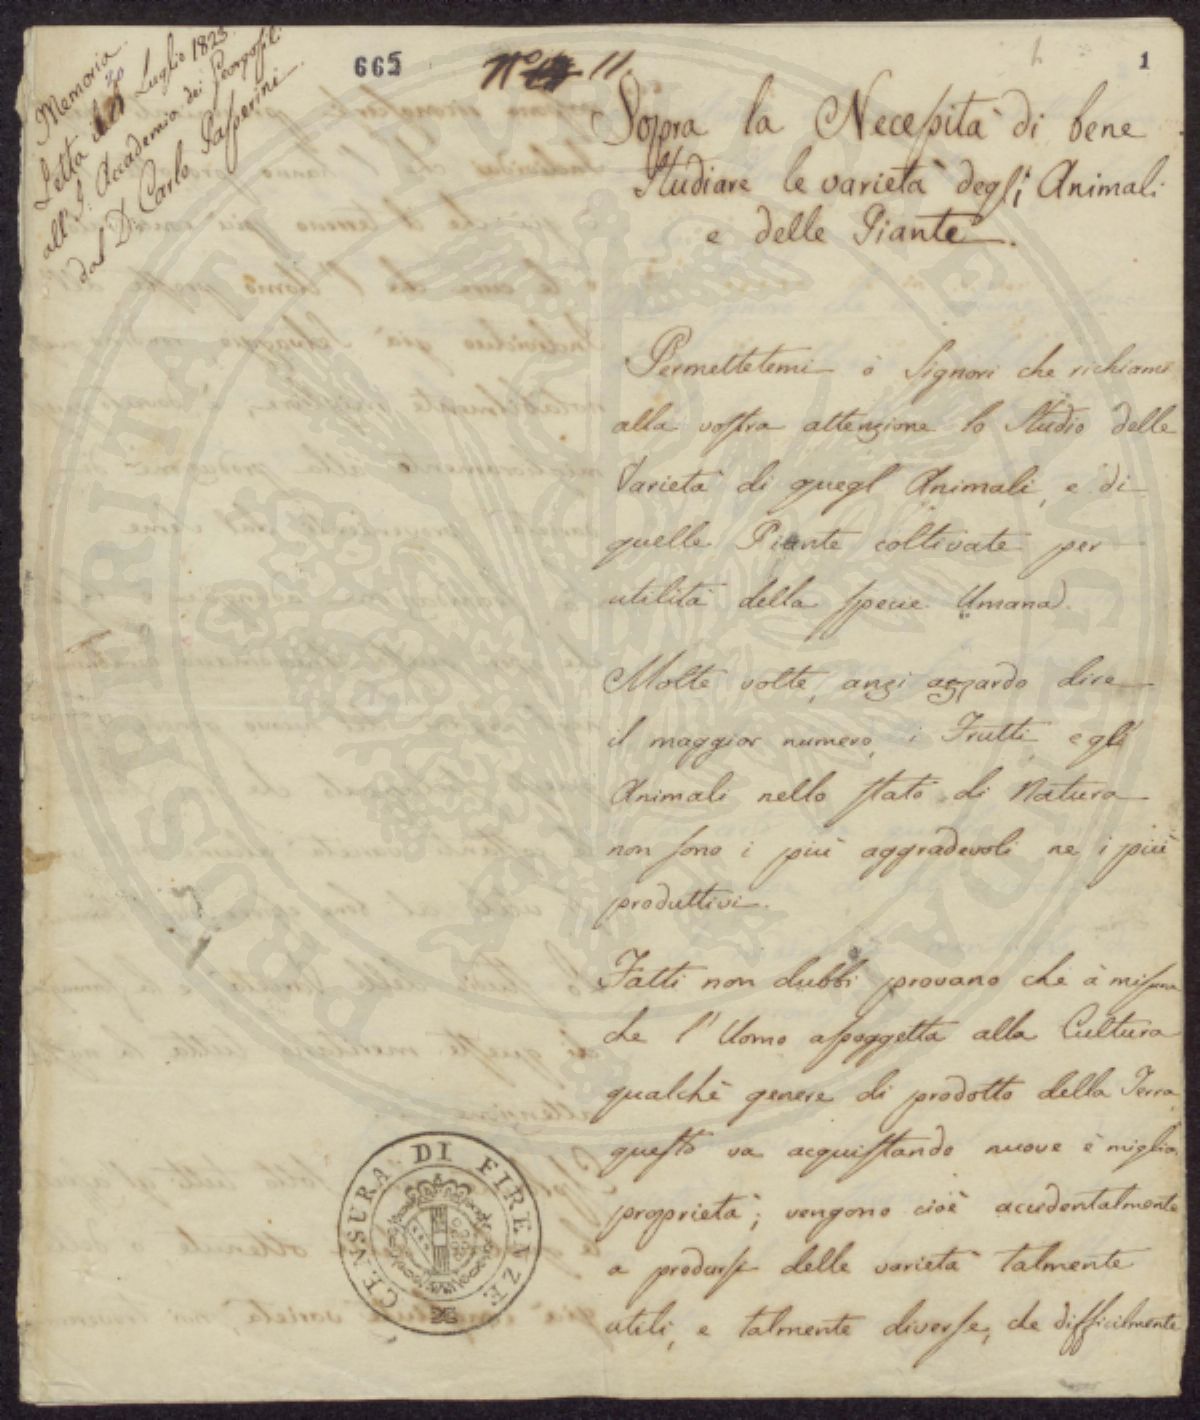 Memoria
Letta il 20 Luglio 1823
all' I. Accademia dei Georgofili
dal D. Carlo Passerini
665
N° 11.
1
Sopra la Necessità di bene
studiare le varietà degli Animali
e delle Piante.
Permettetemi ò Signori che richiami
alla vostra attenzione lo Studio delle
Varietà di quegl Animali, e di
quelle Piante coltivate per
utilità della specie Umana.
Molte volte, anzi azzardo dire
il maggior numero, i Frutti e gli
Animali nello stato di Natura
non sono i più aggradevoli ne i più
produttivi.
Fatti non dubbi provano che à misura
che l'Uomo assoggetta alla Cultura
qualchè genere di prodotto della Terra
questo va acquistando nuove è miglio
proprietà; vengono cioè accidentalmente
a prodursi delle varietà talmente
utili, e talmente diverse, che difficilmente
CENSURA DI FIRENZE
PROSPERITATI PUBLICAE AUGENDAE